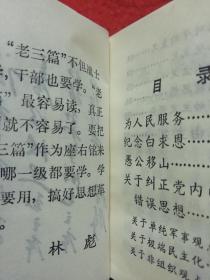 “老三篇”不但战士
学，干部也要学。“
”最容易读，真正
就不容易了。要把
三篇”作为座右铭来
哪一级都要学。学
要用，搞好思想
林 彪
目 录
为人民服务
纪念白求恩
愚公移山
关于纠正党内
错误思想
关于单纯军事观
关于极端民主化
关于非组织观